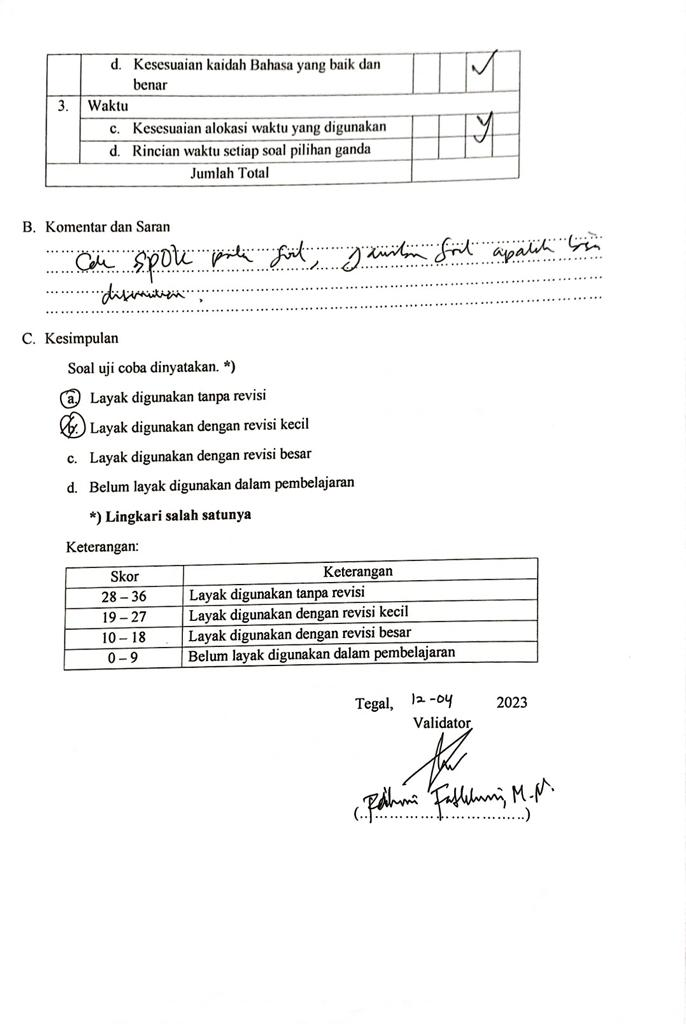 d. Kesesuaian kaidah Bahasa yang baik dan
benar
3. Waktu
c. Kesesuaian alokasi waktu yang digunakan
d. Rincian waktu setiap soal pilihan ganda
Jumlah Total
B. Komentar dan Saran
Cek SPOK pada soal, soal apakah bisa
C. Kesimpulan
Soal uji coba dinyatakan. *)
a. Layak digunakan tanpa revisi
b. Layak digunakan dengan revisi kecil
c. Layak digunakan dengan revisi besar
d. Belum layak digunakan dalam pembelajaran
*) Lingkari salah satunya
Keterangan:
Skor Keterangan
28 – 36 Layak digunakan tanpa revisi
19 – 27 Layak digunakan dengan revisi kecil
10 – 18 Layak digunakan dengan revisi besar
0 – 9 Belum layak digunakan dalam pembelajaran
Tegal, 12-04 2023
Validator
M.M.